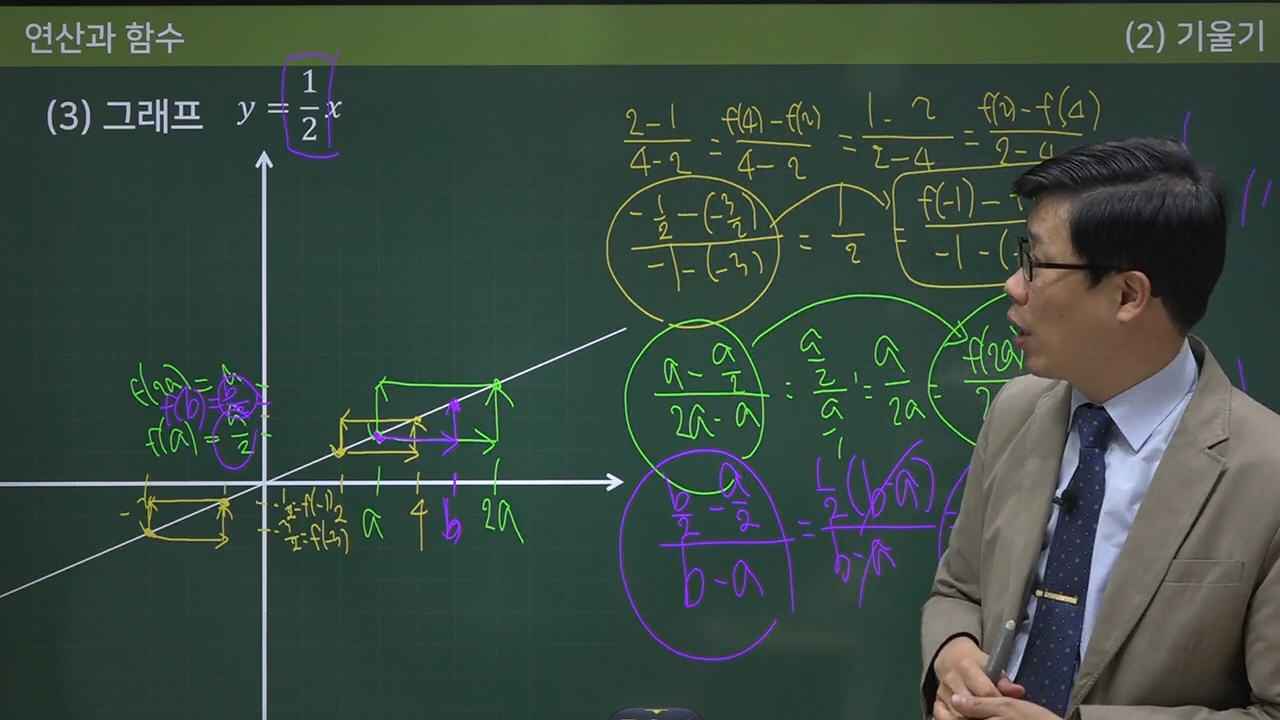 연산과 함수
(2) 기울기
(3) 그래프 y = 1/2 x
(2-1)/(4-2) = (f(4)-f(2))/(4-2) = (1-2)/(2-4) = (f(2)-f(4))/(2-4)
(-1/2-(-3/2))/(-1-(-3)) = 1/2 = (f(-1)-)/(-1-(
(a-a/2)/(2a-a) = (a/2)/(a/1) = a/2a = f(2a)
(b/2-a/2)/(b-a) = (1/2(b-a))/(b-a)
f(2a) = a
f(b) = b/2
f(a) = a/2
a 4 b 2a
-1/2=f(-1) 2
-3/2=f(-3)